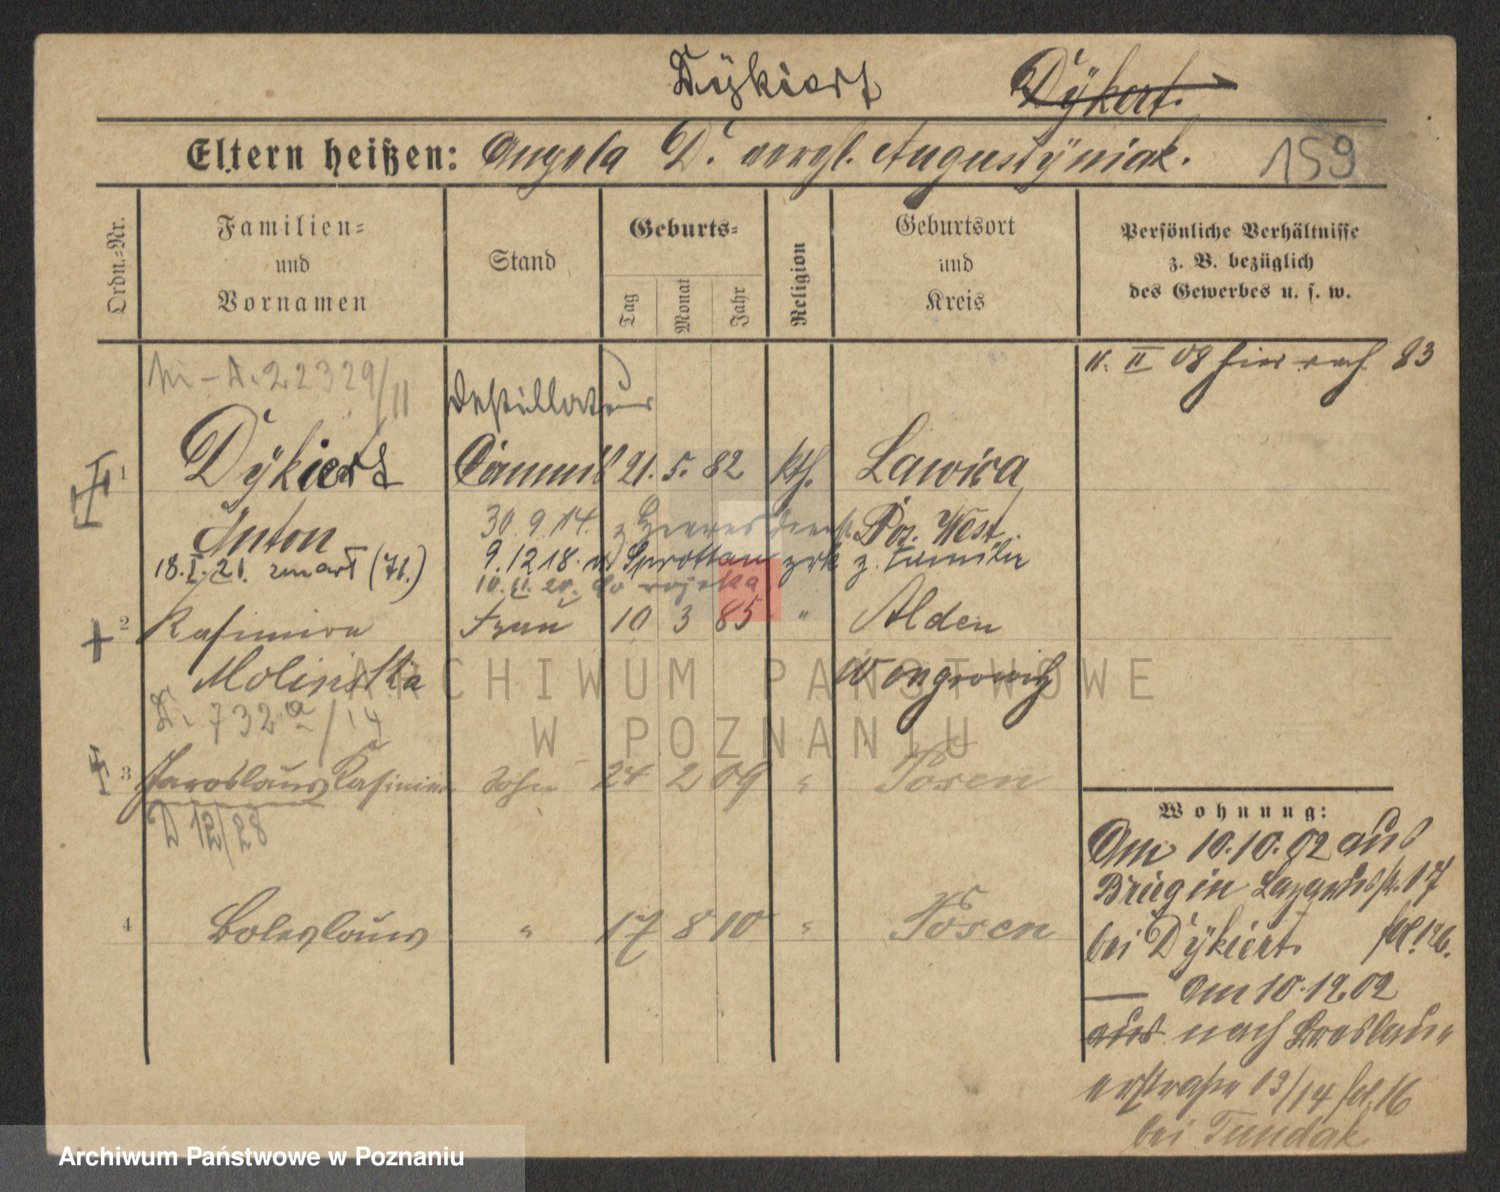 Dÿkiert Dÿkert.
Eltern heißen: Angela D. vergl. Augustÿniak. 159
Ordn.-Nr.
Familien-
und
Vornamen
Stand
Geburts-
Tag
Monat
Jahr
Religion
Geburtsort
und
Kreis
Persönliche Verhältnisse
z. B. bezüglich
des Gewerbes u. s. w.
A. 22329/11
Destillateur
II 08 hier 83
1 Dÿkiert Commis 21. 5. 82 kth. Lawica
Anton 30 9. 14. z Heeresdienst Pos. West.
18. I. 21. zmarł (71.) 9. 12 18. Sprottau zrk z. Familie
10. II. 20. do wojska
2 Kasimira Frau 10 3 85 " Alden
Molinska Wongrowitz
D. 732a/14
3 Jaroslaus Kasimir Sohn 24 2 09 " Posen
D 12/28
4 Boleslaus " 17 8 10 " Posen
Wohnung:
Am 10. 10. 02 aus
Brieg in Lazarusstr. 17
bei Dÿkiert. fol. 126.
— Am 10. 12 02
aus nach Breslau-
erstraße 13/14 fol. 16
bei Tundak
ARCHIWUM PAŃSTWOWE
W POZNANIU
Archiwum Państwowe w Poznaniu